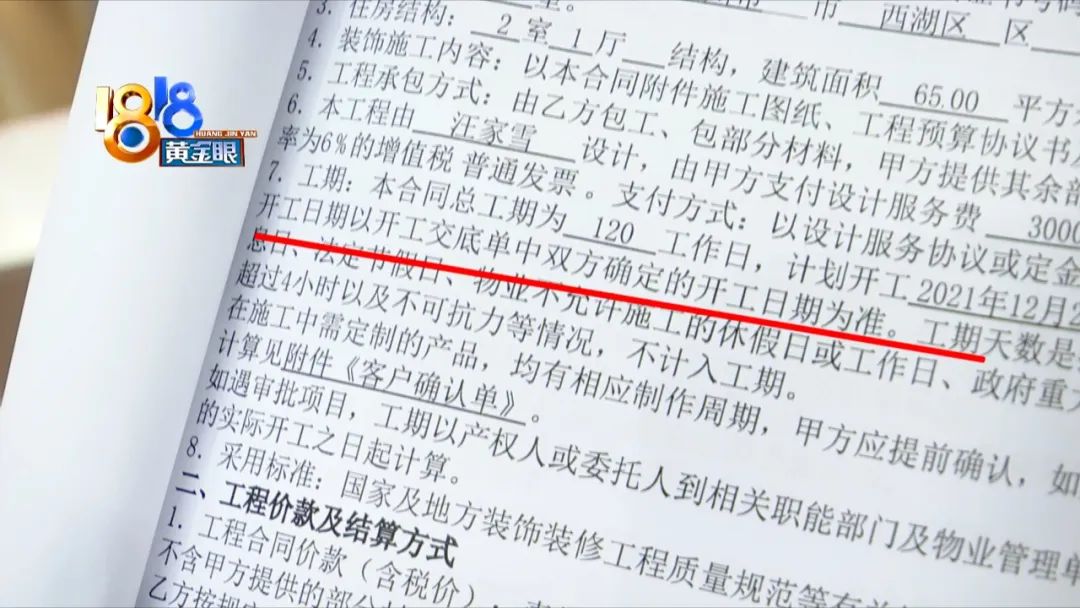 1818
HUANG JIN YAN
黄金眼
市 西湖区 区
3. 住房结构: 2 室 1 厅 结构, 建筑面积 65.00 平方
4. 装饰施工内容: 以本合同附件施工图纸、工程预算协议书
5. 工程承包方式: 由乙方包工、包部分材料, 甲方提供其余部
6. 本工程由 汪家雪 设计, 由甲方支付设计服务费 3000
率为6%的增值税 普通发票 。支付方式: 以设计服务协议或定金
7. 工期: 本合同总工期为 120 工作日, 计划开工 2021年12月2
开工日期以开工交底单中双方确定的开工日期为准。工期天数是
息日、法定节假日、物业不允许施工的休假日或工作日、政府重
超过4小时以及不可抗力等情况, 不计入工期。
在施工中需定制的产品, 均有相应制作周期, 甲方应提前确认, 如
计算见附件《客户确认单》。
如遇审批项目, 工期以产权人或委托人到相关职能部门及物业管理单
的实际开工之日起计算。
8. 采用标准: 国家及地方装饰装修工程质量规范等有
二、工程价款及结算方式
1. 工程合同价款(含税价):
不含甲方提供的部分
乙方按规定